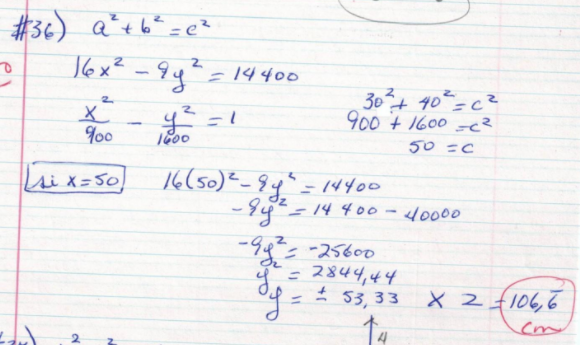 #36) a² + b² = c²
16x² - 9y² = 14400
x²/900 - y²/1600 = 1
30² + 40² = c²
900 + 1600 = c²
50 = c
si x = 50
16(50)² - 9y² = 14400
-9y² = 14 400 - 40000
-9y² = -25600
y² = 2844,44
y = ± 53,33 × 2 = 106,6̅
cm
4